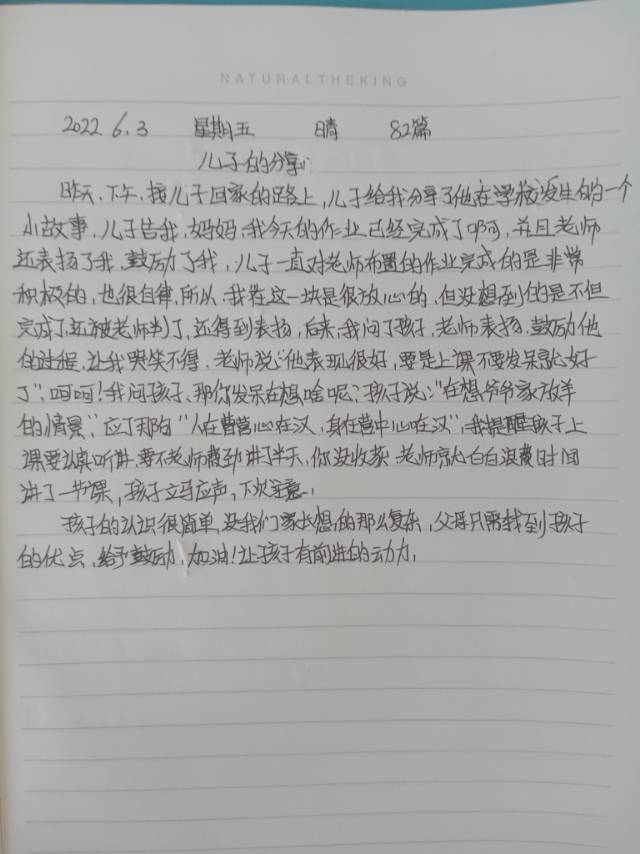 NATURALTHEKING
2022.6.3 星期五 晴 82篇
儿子的分享
昨天、下午、接儿子回家的路上,儿子给我分享了他在学校发生的一个
小故事,儿子告我,妈妈,我今天的作业已经完成了啊,并且老师
还表扬了我,鼓励了我,儿子一直对老师布置的作业完成的是非常
积极的,也很自律,所以,我在这一块是很放心的,但没想到的是不但
完成了还被老师判了,还得到表扬,后来,我问了孩子,老师表扬,鼓励他
的过程,让我哭笑不得,老师说:"他表现很好,要是上课不要发呆就好
了",呵呵!我问孩子、那你发呆在想啥呢?孩子说:"在想爷爷家放羊
的情景",应了那句"人在曹营心在汉,身在营中心在汉",我提醒孩子上
课要认真听讲,要不老师讲了半天,你没收获 老师就白白浪费时间
讲了一节课,孩子立马应声,下次注意,
孩子的认识很简单,没我们家长想的那么复杂,父母只需找到孩子
的优点,给予鼓励,加油!让孩子有前进的动力,